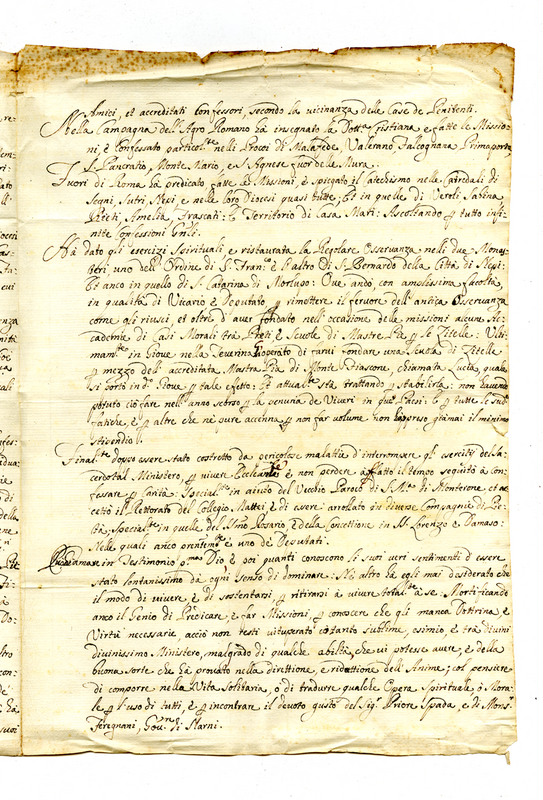 Amici, et accreditati Confessori, secondo la vicinanza delle Case de Penitenti.
Nella Campagna dell'Agro Romano hà insegnato la Dott.a Cristiana, e fatte le Missio-
ni, e Confessato particol.te nelli Procoi di Malafede, Valerano, Falcognana, Primaporta,
S. Pancratio, Monte Mario, e S. Agnese fuor delle Mura.
Fuori di Roma hà predicato, fatte le Missioni, e spiegato il Catechismo nelle Catedrali di
Segni, Sutri, Nepi, e nelle loro Diocesi quasi tutte. Et in quelle di Veroli, Sabina,
Rieti, Amelia, Frascati: e Territorio di Casa Mari: Ascoltando p tutto infi-
nite Confessioni Gn'li.
Hà dato gli esercizi Spirituali, e ristaurata la Regolare Osservanza nelli due Monas-
teri, uno dell'Ordine di S. Fran.co e l'altro di S. Bernardo della Città di Nepi:
Et anco in quello di S. Catarina di Morlupo: Ove andò con amplissima facoltà
in qualità di Vicario e Deputato p rimettere il fervore dell'antica Osservanza
come gli riuscì, et oltre d'aver fondato nell'occasione delle missioni alcune Ac-
cademie di Casi Morali trà Preti e Scuole di Mastre Pie p le Zitelle: Ulti-
mam.te in Giove nella Teverina hà operato di farvi fondare una Scuola di Zitelle
p mezzo dell'accreditata Mastra Pia di Monte Fiascone, chiamata Lucia, quale
si portò in d.o Giove p tale effetto: Et attual.te stà trattando p stabilirla: non havendo
potuto ciò fare nell'anno scorso p la penuria de Viveri in que' Paesi: E p tutte le sud.e
fatiche, e p altre che ne pure accenna p non far volume non hà preso giamai il minimo
stipendio.
Final.te doppo essere stato costretto da pericolose malattie d'interomper gl'esercitij del Sa-
cerdotal Ministero, p vivere e non perdere affatto il tempo seguitò à con-
fessare p Carità: Special.te in aiuto del Vecchio Paroco di S. M.a di Monterone, et ac-
cettò il Rettorato del Collegio Mattei, e di essere arrolato in diverse Compagnie di Pie-
tà, special.te in quelle del S.mo Rosario, e della Concettione in S. Lorenzo e Damaso:
Nelle quali anco e uno de Deputati.
Chiamare in Testimonio p.mo Dio e poi quanti conoscono li suoi veri sentimenti d'essere
stato lontanissimo da ogni senso di dominare: Nè altro hà egli mai desiderato che
il modo di vivere, e di sostentarsi p ritirarsi à vivere total.te à se: Mortificando
anco il Genio di Predicare, e far Missioni, p conoscere che gli manca Dottrina, e
Virtù necessarie, acciò non resti vituperato cotanto sublime, esimio, e trà divini
divinissimo Ministero, malgrado di qualche abiltà, che vi potesse avere, e della
buona sorte che hà provato nella direttione, e riduttione dell'Anime; col pensiere
di comporre nella Vita Solitaria, o di tradurre qualche Opera Spirituale, o Mora-
le p l'uso di tutti, e p incontrare il devoto gusto del Sig. Priore Spada, e di Mons.
Feregnani, Gov.re di Narni.